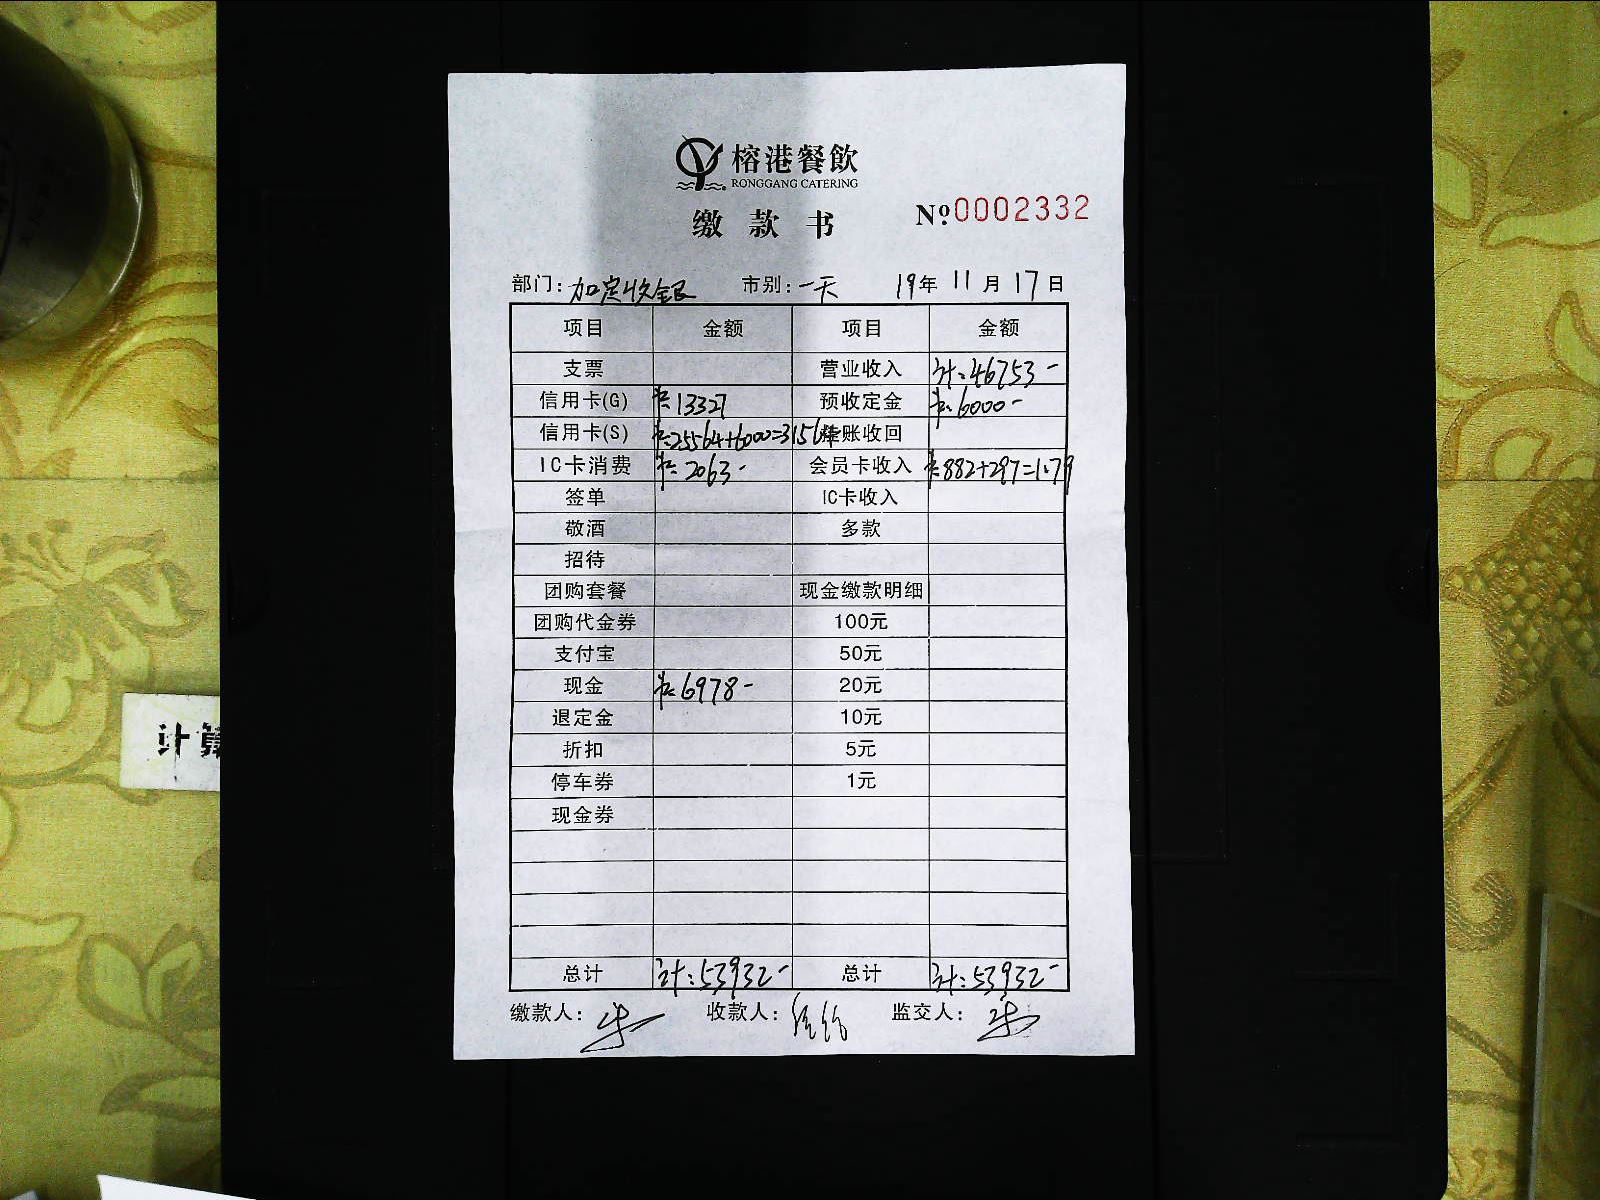 榕港餐飲
RONGGANG CATERING
缴款书 №0002332
部门: 加定收银 市别: 一天 19年 11月 17日
项目 金额 项目 金额
支票 营业收入 计:46753-
信用卡(G) 卡:13327 预收定金 卡:6000-
信用卡(S) 卡:25564+6000=31564 挂账收回
IC卡消费 卡:2063- 会员卡收入 卡:882+297=1179
签单 IC卡收入
敬酒 多款
招待
团购套餐 现金缴款明细
团购代金券 100元
支付宝 50元
现金 卡:6978- 20元
退定金 10元
折扣 5元
停车券 1元
现金券
总计 计:53932- 总计 计:53932-
缴款人: 收款人: 监交人:
计算